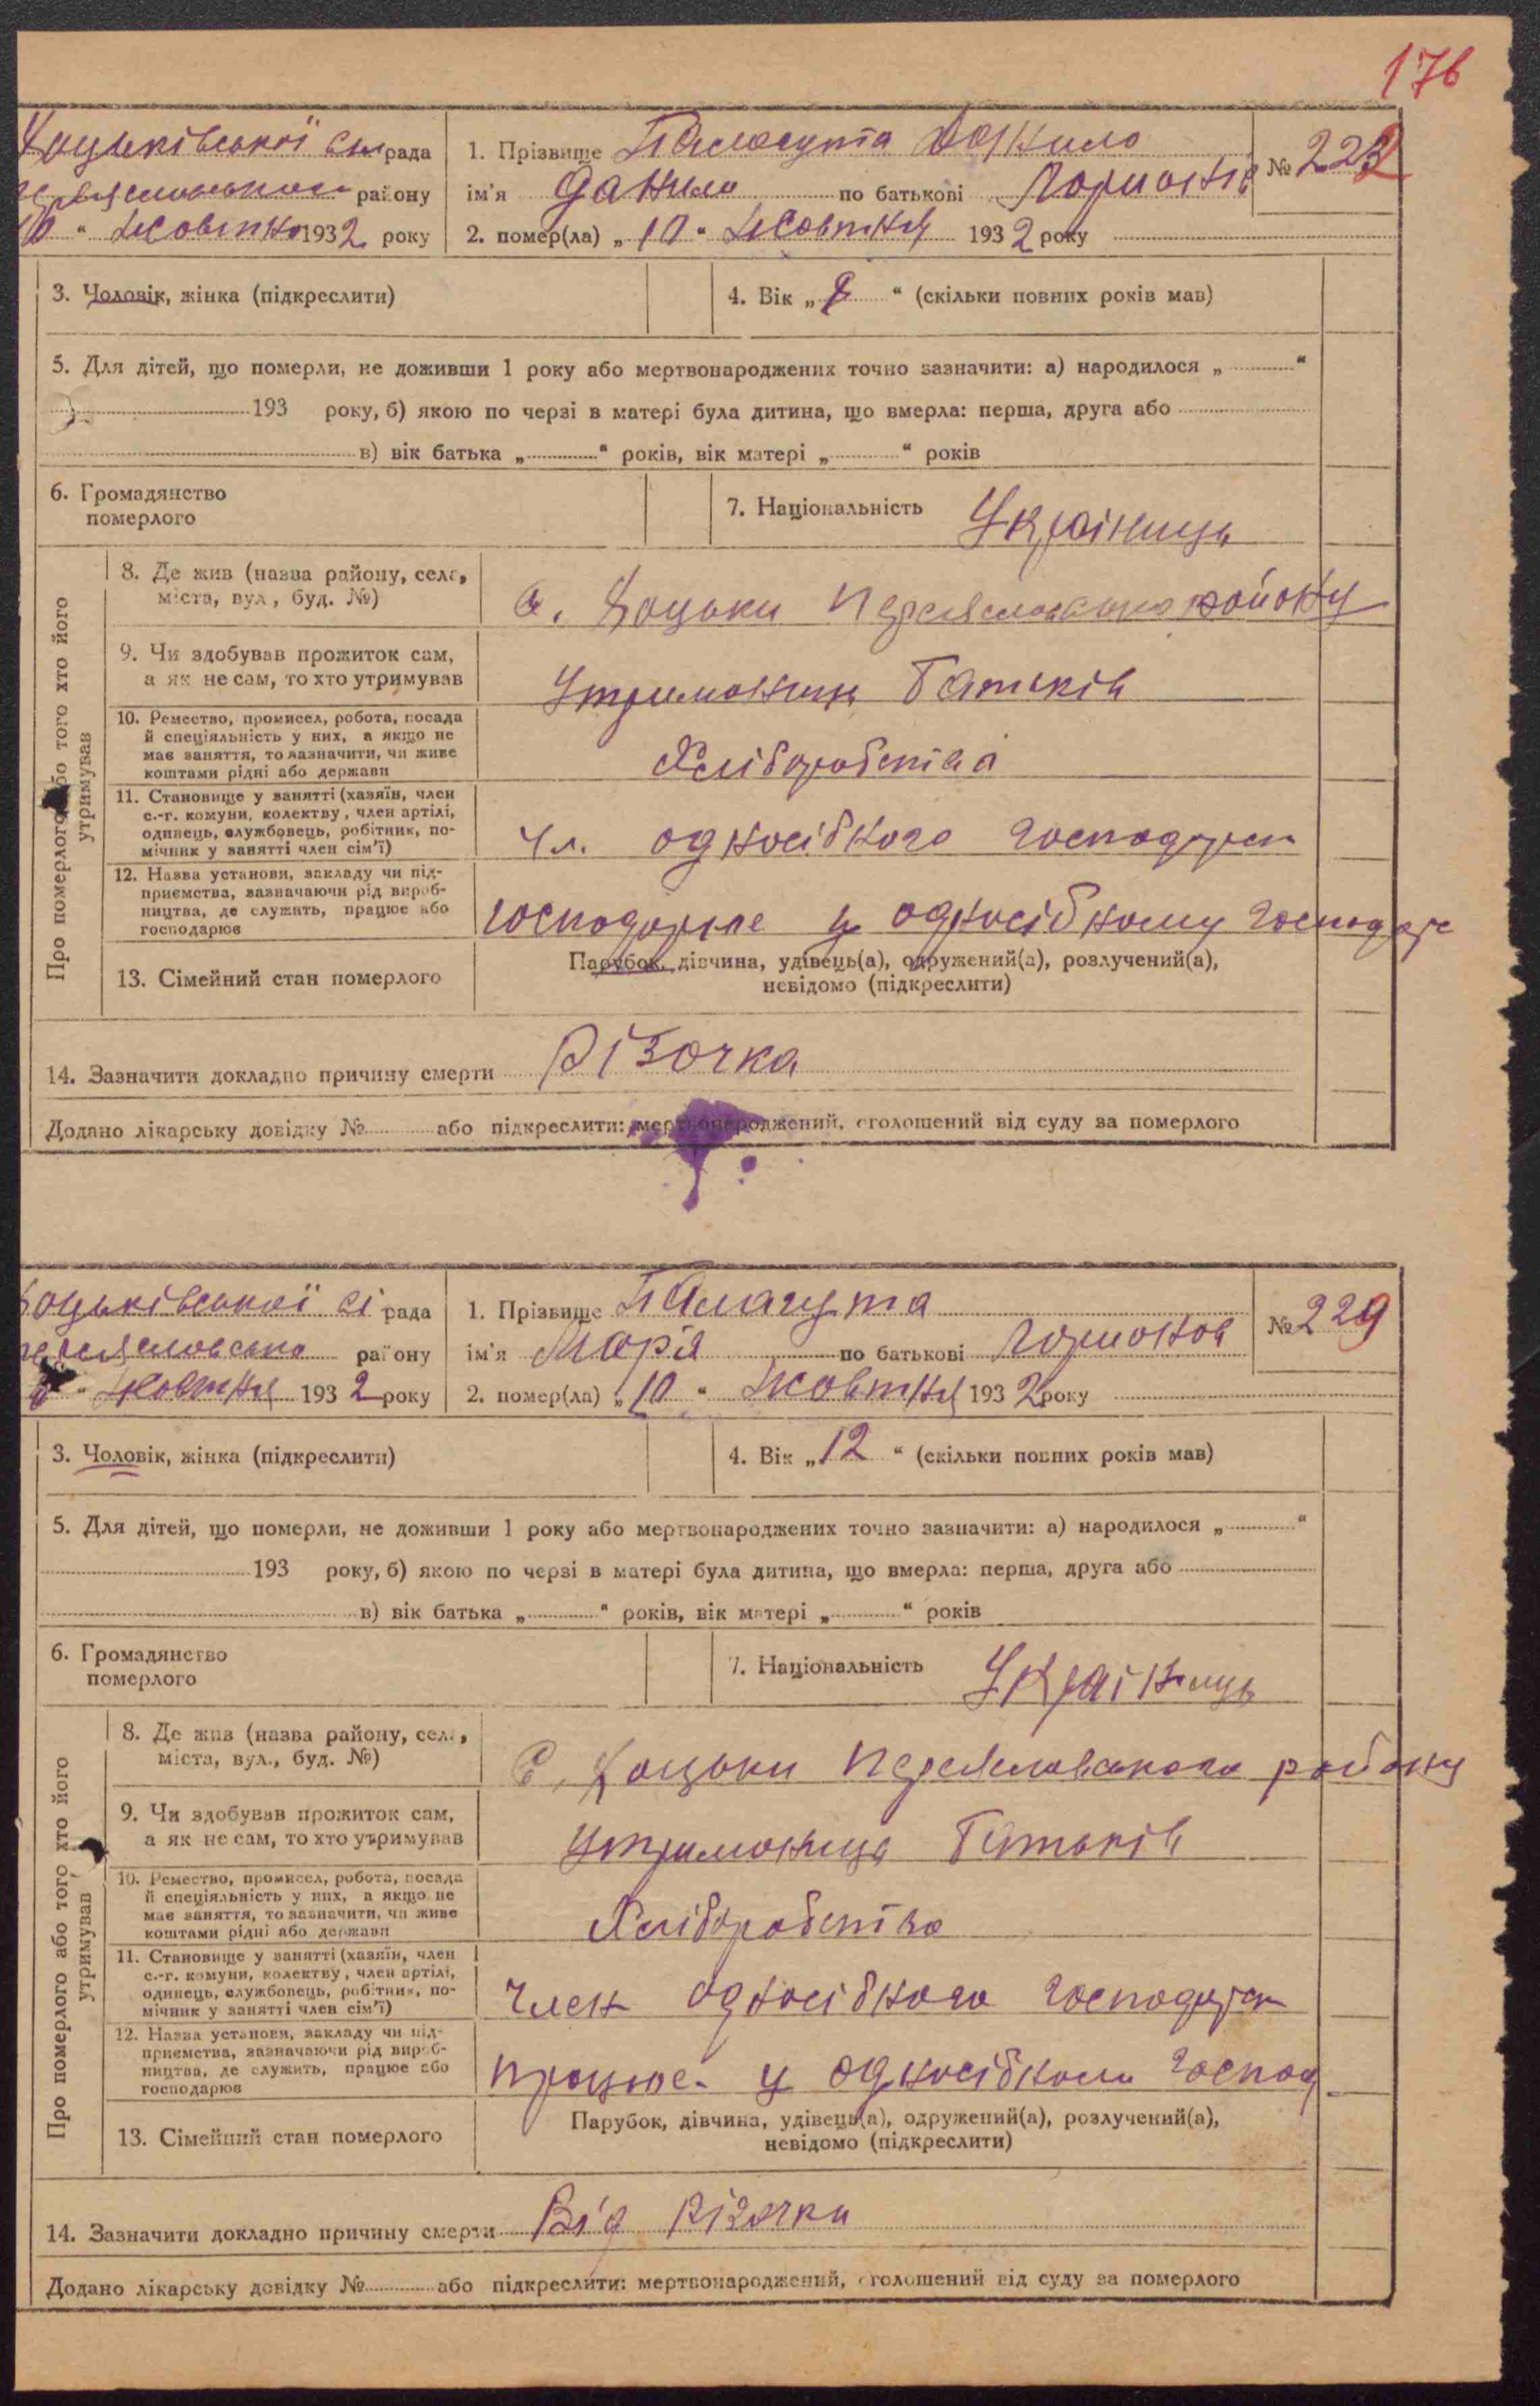 176
Хоцьківської сіл рада
Переяславського району
10 " Жовтня 1932 року
1. Прізвище Паламута Данило
№ 228
ім'я Данило по батькові
2. помер(ла) „ 10 " Жовтня 1932 року
3. Чоловік, жінка (підкреслити)
4. Вік „ " (скільки повних років мав)
5. Для дітей, що померли, не доживши 1 року або мертвонароджених точно зазначити: а) народилося „ "
193 року, б) якою по черзі в матері була дитина, що вмерла: перша, друга або
в) вік батька „ " років, вік матері „ " років
6. Громадянство
померлого
7. Національність Українець
Про померлого або того хто його
утримував
8. Де жив (назва району, села,
міста, вул., буд. №)
с. Хоцьки Переяславського району
9. Чи здобував прожиток сам,
а як не сам, то хто утримував
Утриманець Батьків
10. Ремество, промисел, робота, посада
й спеціяльність у них, а якщо не
має заняття, то зазначити, чи живе
коштами рідні або держави
Хліборобства
11. Становище у занятті (хазяїн, член
с.-г. комуни, колектву, член артілі,
одинець, службовець, робітник, по-
мічник у занятті член сім'ї)
Чл. односібного господарст
12. Назва установи, закладу чи під-
приємства, зазначаючи рід вироб-
ництва, де служить, працює або
господарює
господарює у односібному господарс
13. Сімейний стан померлого
Парубок, дівчина, удівець(а), одружений(а), розлучений(а),
невідомо (підкреслити)
14. Зазначити докладно причину смерти Різочка
Додано лікарську довідку № або підкреслити: мертвонароджений, оголошений від суду за померлого
Хоцьківської сі рада
Переяславсько району
Жовтня 1932 року
1. Прізвище Паламута
№ 229
ім'я Марія по батькові
2. помер(ла) „ 10 " Жовтня 1932 року
3. Чоловік, жінка (підкреслити)
4. Вік „ 12 " (скільки повних років мав)
5. Для дітей, що померли, не доживши 1 року або мертвонароджених точно зазначити: а) народилося „ "
193 року, б) якою по черзі в матері була дитина, що вмерла: перша, друга або
в) вік батька „ " років, вік матері „ " років
6. Громадянство
померлого
7. Національність Українець
Про померлого або того хто його
утримував
8. Де жив (назва району, села,
міста, вул., буд. №)
С. Хоцьки Переяславського району
9. Чи здобував прожиток сам,
а як не сам, то хто утримував
Утриманець Батьків
10. Ремество, промисел, робота, посада
й спеціяльність у них, а якщо не
має заняття, то зазначити, чи живе
коштами рідні або держави
Хліборобство
11. Становище у занятті (хазяїн, член
с.-г. комуни, колектву, член артілі,
одинець, службовець, робітник, по-
мічник у занятті член сім'ї)
Член односібного господарст
12. Назва установи, закладу чи під-
приємства, зазначаючи рід вироб-
ництва, де служить, працює або
господарює
працює у односібном господ.
13. Сімейний стан померлого
Парубок, дівчина, удівець(а), одружений(а), розлучений(а),
невідомо (підкреслити)
14. Зазначити докладно причину смерти Від Різочки
Додано лікарську довідку № або підкреслити: мертвонароджений, оголошений від суду за померлого